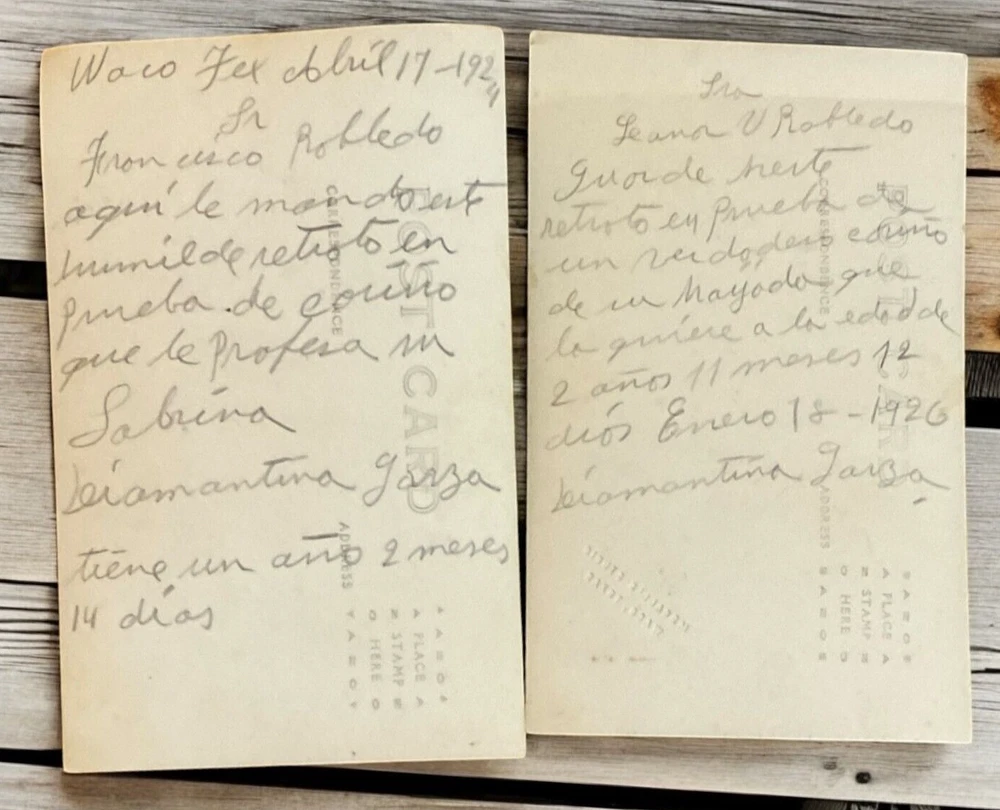 Waco Tex Abril 17-1924
Sr
Francisco Robledo
aquí le mando este
humilde retrato en
Prueba de cariño
que le Profesa su
Sabrina
Diamantina Garza
tiene un año 2 meses
14 días
POST CARD
CORRESPONDENCE
ADDRESS
PLACE
STAMP
HERE
Sra
Leanor V Robledo
Guarde neste
retrato en Prueba de
un verdadero cariño
de su hayjada que
la quiere a la edad de
2 años 11 meses 12
diós Enero 18-1926
Diamantina Garza
POST CARD
CORRESPONDENCE
ADDRESS
PLACE
STAMP
HERE